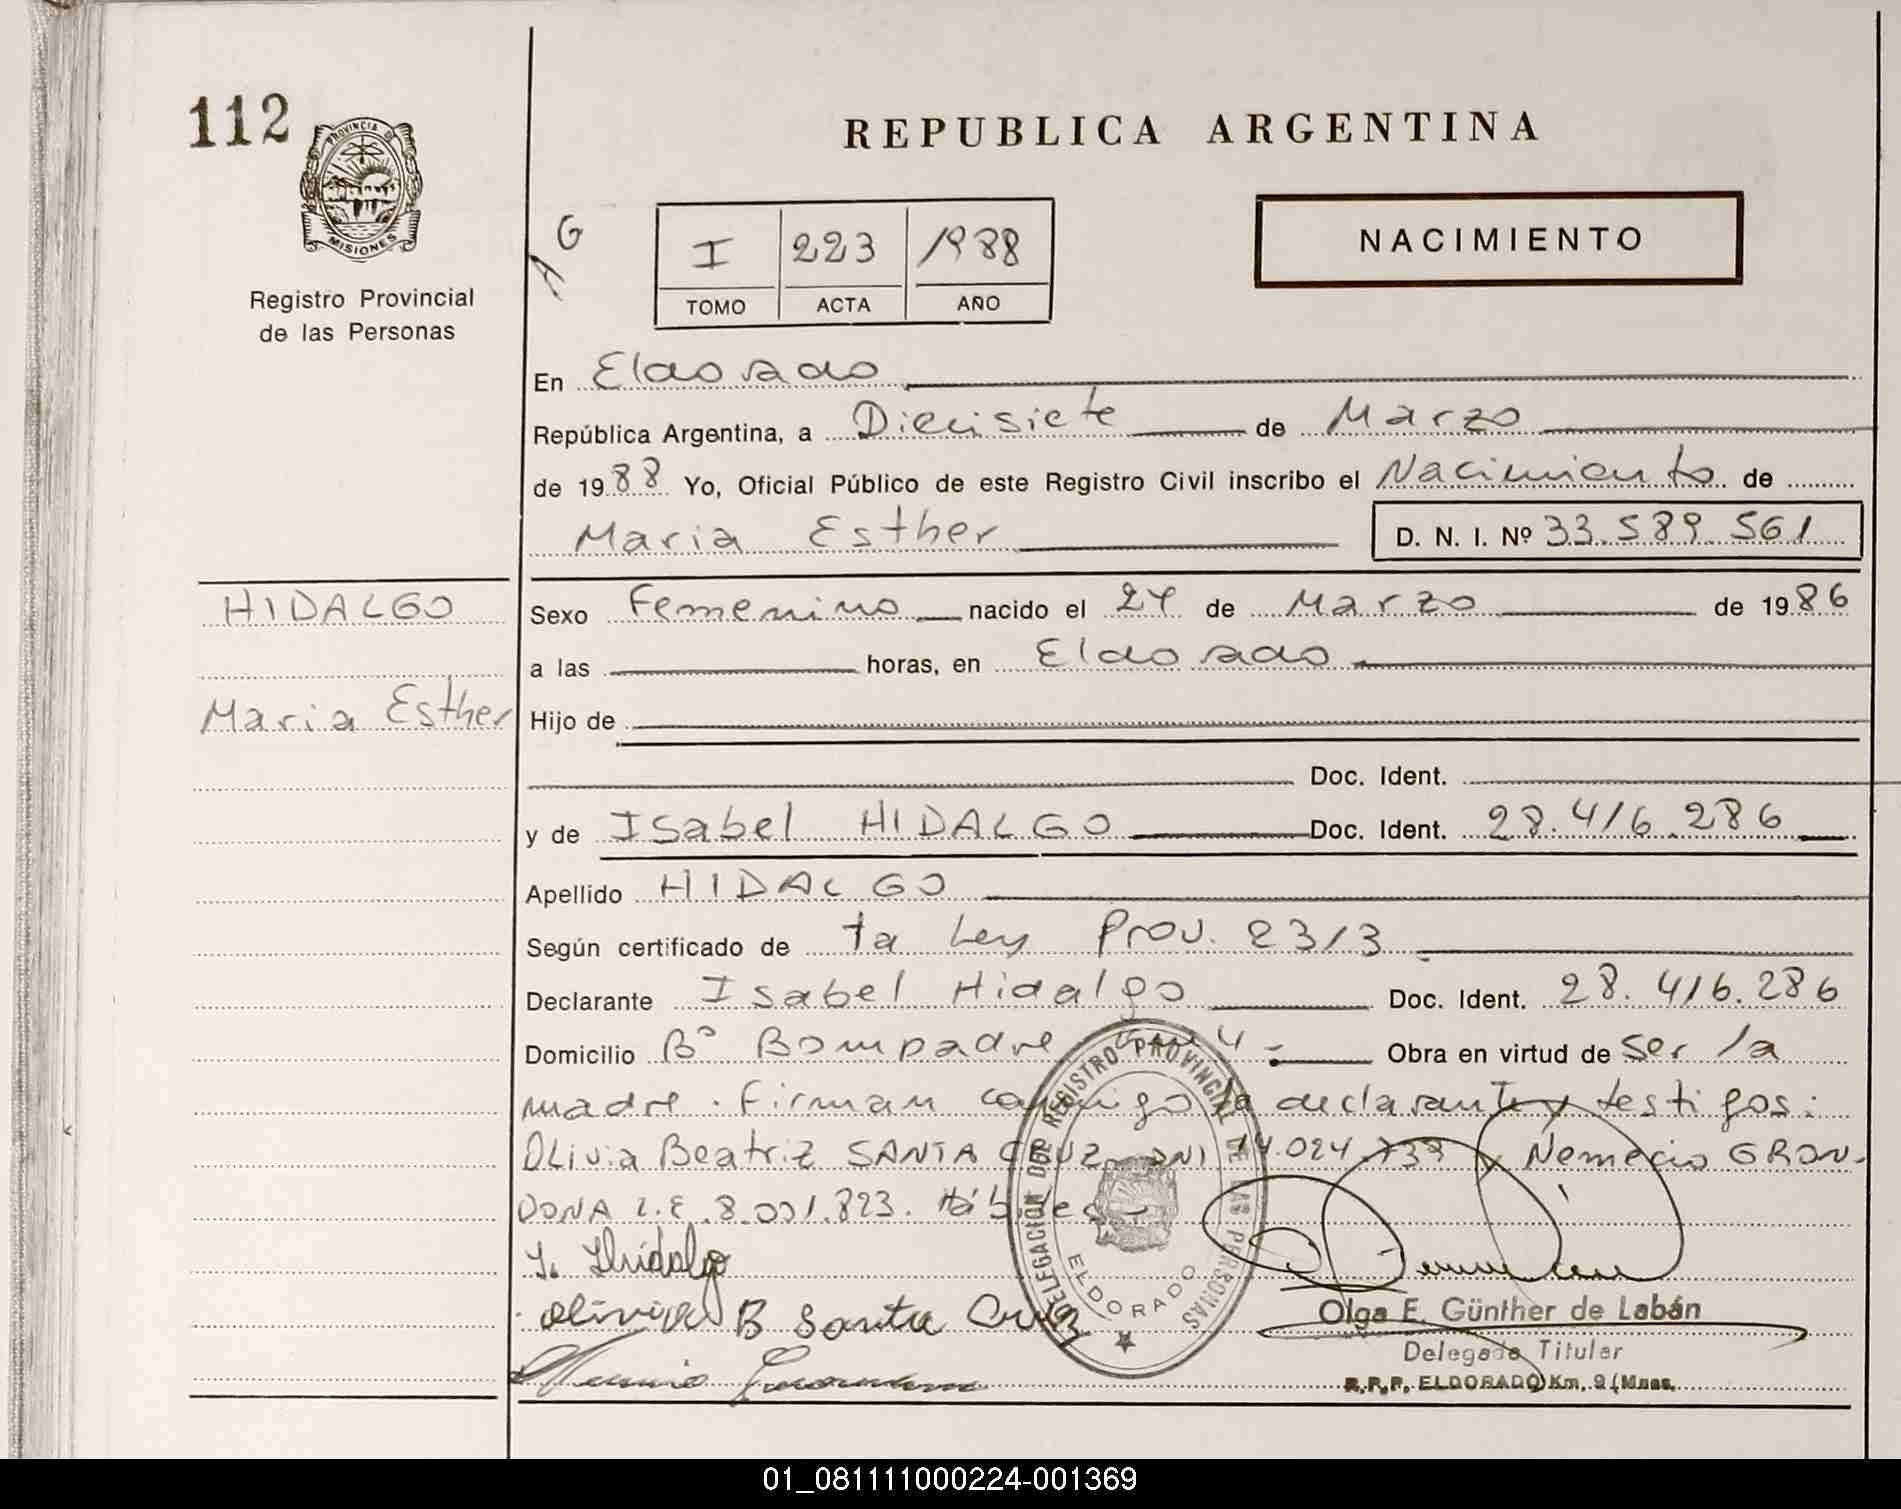 112
PROVINCIA DE
MISIONES
Registro Provincial
de las Personas
REPUBLICA ARGENTINA
A G
I 223 1988
TOMO ACTA AÑO
NACIMIENTO
En Eldorado
República Argentina, a Diecisiete de Marzo
de 1988 Yo, Oficial Público de este Registro Civil inscribo el Nacimiento de
Maria Esther D. N. I. Nº 33.589.561
HIDALGO
Maria Esther
Sexo Femenino nacido el 24 de Marzo de 1986
a las horas, en Eldorado
Hijo de
Doc. Ident.
y de Isabel HIDALGO Doc. Ident. 28.416.286
Apellido HIDALGO
Según certificado de ta Ley Prov. 2313
Declarante Isabel Hidalgo Doc. Ident. 28.416.286
Domicilio Bº Bompadre 4 Obra en virtud de ser la
madre. Firman conmigo la declarante y testigos:
Olivia Beatriz SANTA CRUZ DNI 14.024.739 y Nemecio GRON-
DONA L.E. 8.001.823. Hábiles
I. Hidalgo
Olivia B Santa Cruz
DELEGACION DEL REGISTRO PROVINCIAL DE LAS PERSONAS
ELDORADO
Olga E. Günther de Labán
Delegada Titular
R.P.P. ELDORADO Km. 9 (Mnes.
01_081111000224-001369